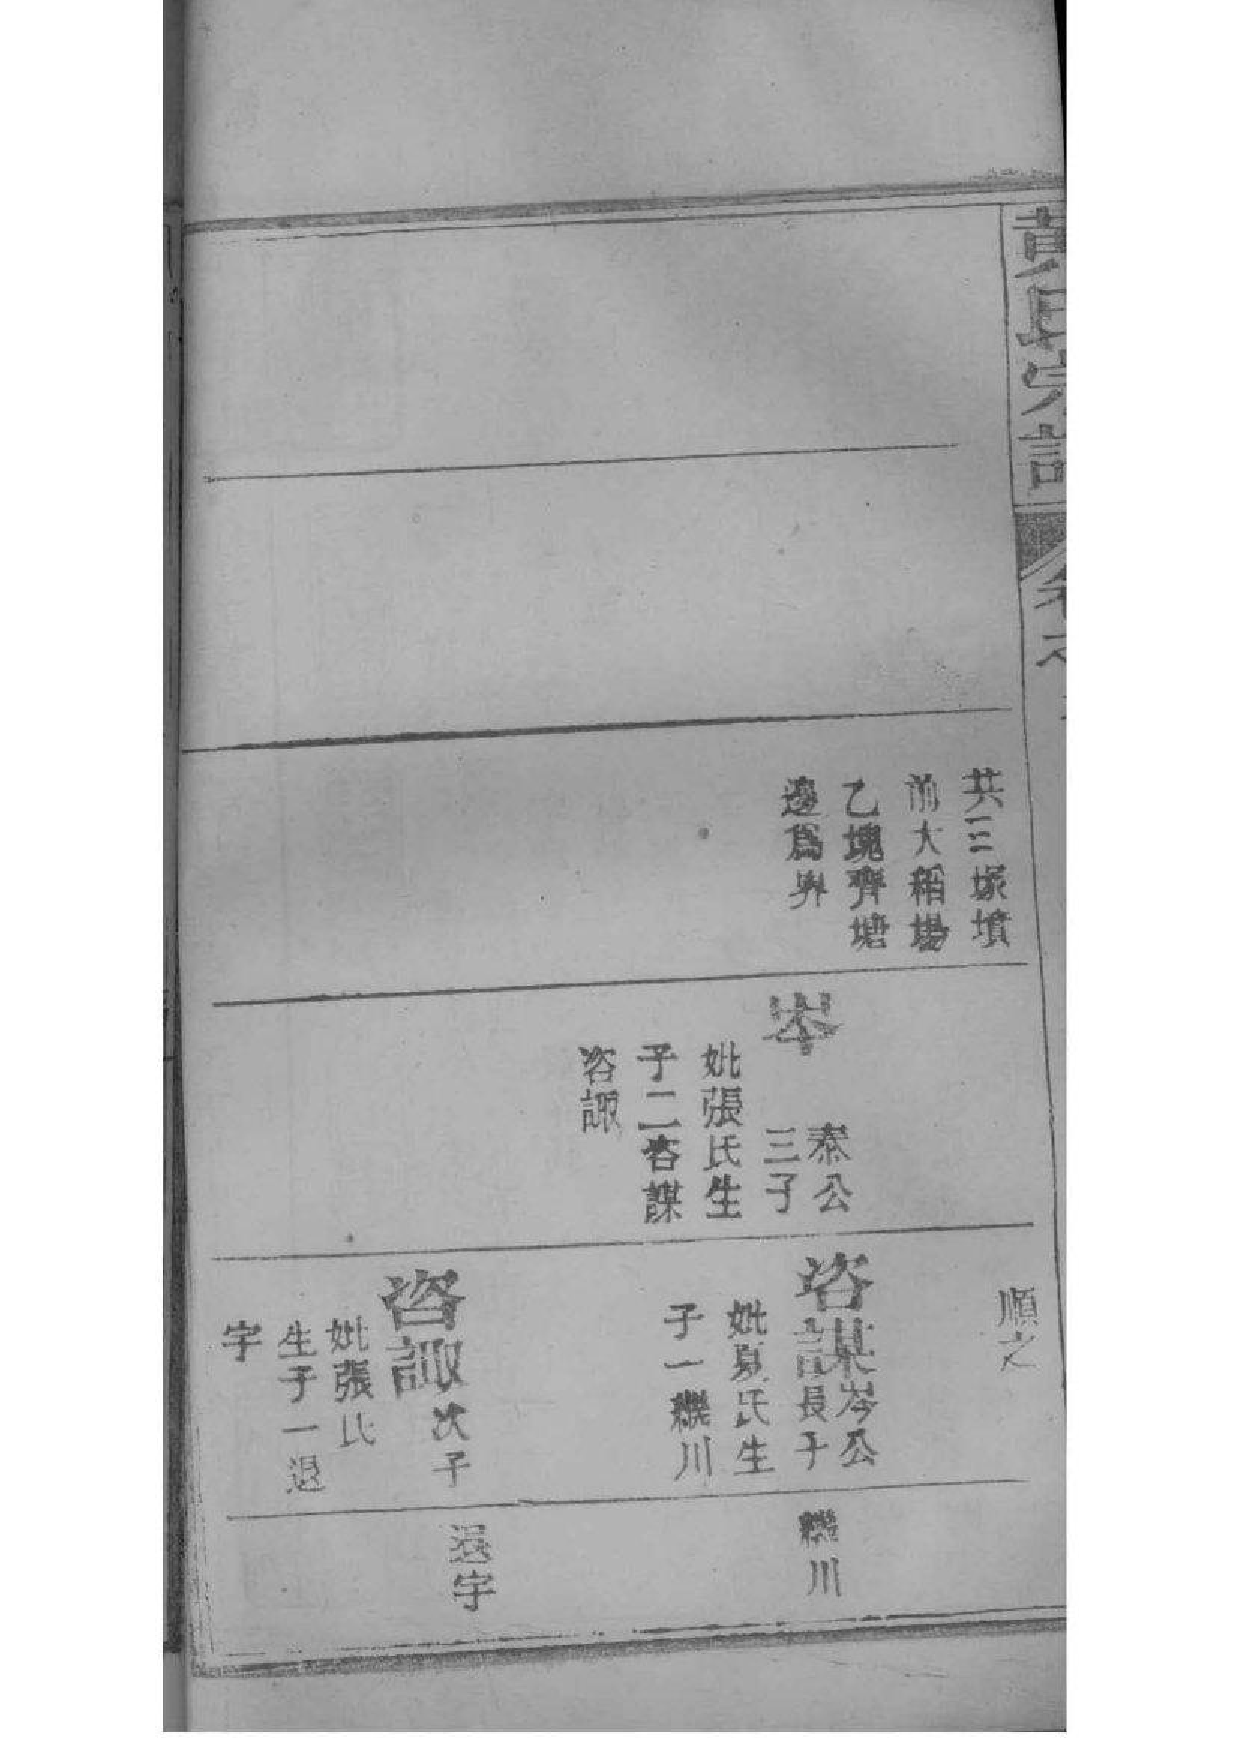 黄氏宗譜
卷之
共三塚墳
前大稻場
乙塊齊塘
邊爲界
岑
泰公
三子
妣張氏生
子二咨謀
咨諏
順之
咨謀
岑公
長子
妣夏氏生
子一繼川
咨諏
次子
妣張氏
生子一退
宇
繼川
退宇